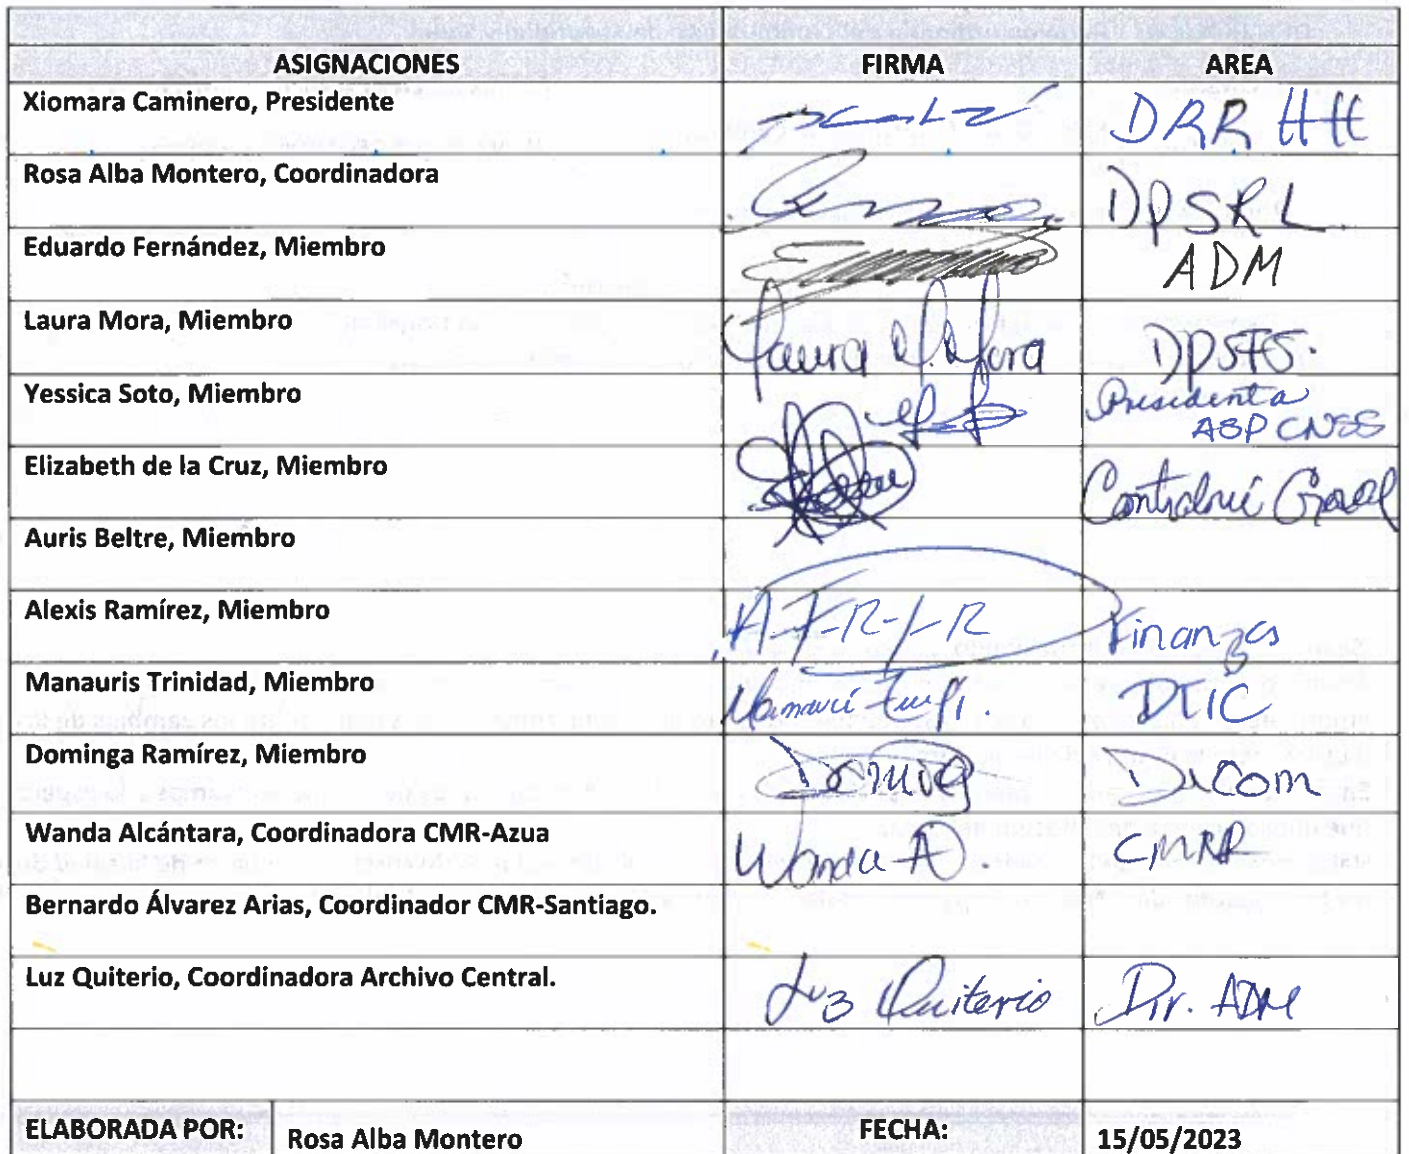 ASIGNACIONES FIRMA AREA
Xiomara Caminero, Presidente DRR HH
Rosa Alba Montero, Coordinadora DPSRL
Eduardo Fernández, Miembro ADM
Laura Mora, Miembro Laura Mora DPSFS.
Yessica Soto, Miembro Presidenta
ASP CNSS
Elizabeth de la Cruz, Miembro
Auris Beltre, Miembro
Alexis Ramírez, Miembro Finanzas
Manauris Trinidad, Miembro DTIC
Dominga Ramírez, Miembro Dicom
Wanda Alcántara, Coordinadora CMR-Azua Wanda A. CMNR
Bernardo Álvarez Arias, Coordinador CMR-Santiago.
Luz Quiterio, Coordinadora Archivo Central. Luz Quiterio Dir. ADM
ELABORADA POR: Rosa Alba Montero FECHA: 15/05/2023